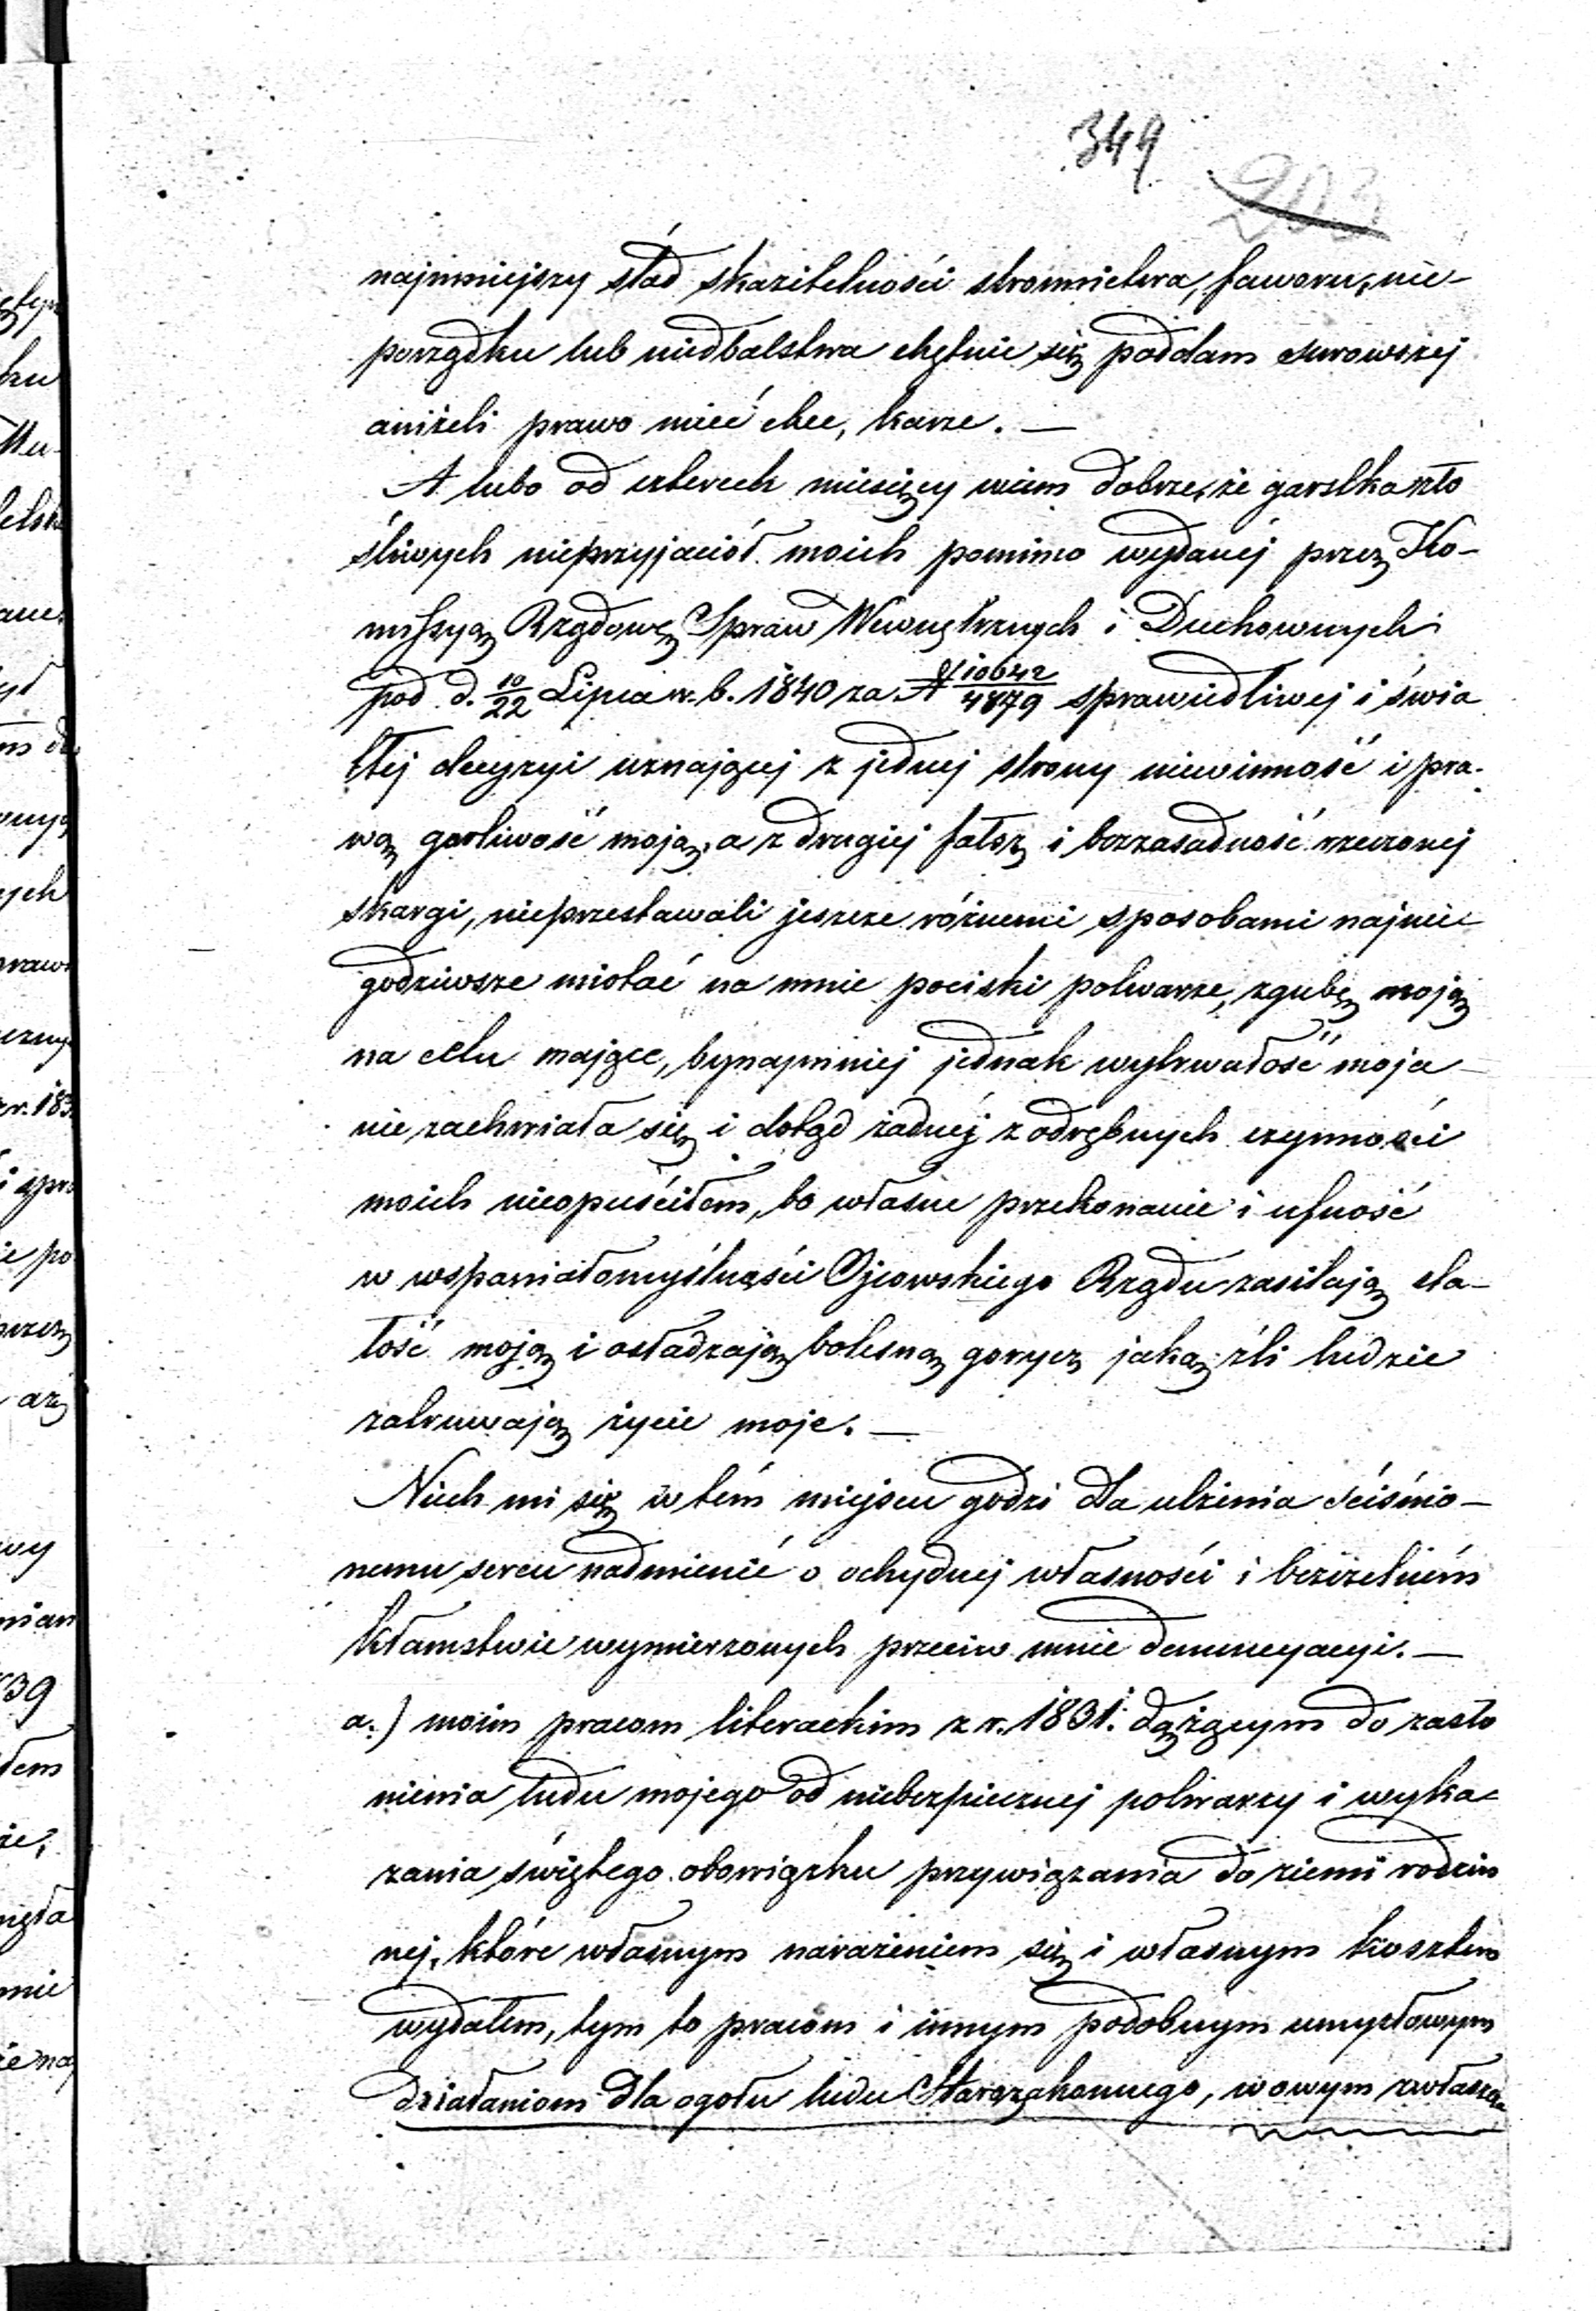 349
203
najmniejszy ślad skazitelności stronnictwa, faworu, nie-
porządku lub niedbalstwa chętnie się poddam surowszej
aniżeli prawo mieć chce, karze. —
A lubo od czterech miesięcy wiem dobrze, że garstka zło
śliwych nieprzyjaciół moich pomimo wydanéj przez Ko-
missyą Rządową Spraw Wewnętrznych i Duchownych
pod d. 10/22 Lipca r. b. 1840 za N 10642/4879 sprawiedliwej i świa
tłej decyzyi uznającej z jednej strony niewinność i pra-
wą gorliwość moją, a z drugiej fałsz i bezzasadność rzeczonej
skargi, nieprzestawali jeszcze różnemi sposobami najnie-
godziwsze miotać na mnie pociski potwarze, zgubę moją
na celu mające, bynajmniej jednak wytrwałość moja
nie zachwiała się i dotąd żadnéj z odrębnych czynności
moich nieopuściłem, bo własne przekonanie i ufność
w wspaniałomyślności Ojcowskiego Rządu zasilają sta-
łość moją i osładzają bolesną gorycz jaką źli ludzie
zatruwają życie moje. —
Niech mi się w tém miejscu godzi dla ulżenia ściśnio-
nemu sercu nadmienić o ochydnej własności i bezczelném
kłamstwie wymierzonych przeciw mnie denuncyacyi. —
a.) moim pracom literackim z r. 1831. dążącym do zasło
nienia ludu mojego od niebezpiecznej potwarzy i wyka-
zania świętego obowiązku przywiązania do ziemi rodzin
nej, które własnym narażeniem się i własnym kosztem
wydałem, tym to pracom i innym podobnym umysłowym
działaniom dla ogółu ludu Starozakonnego, w owym zwłaszcza